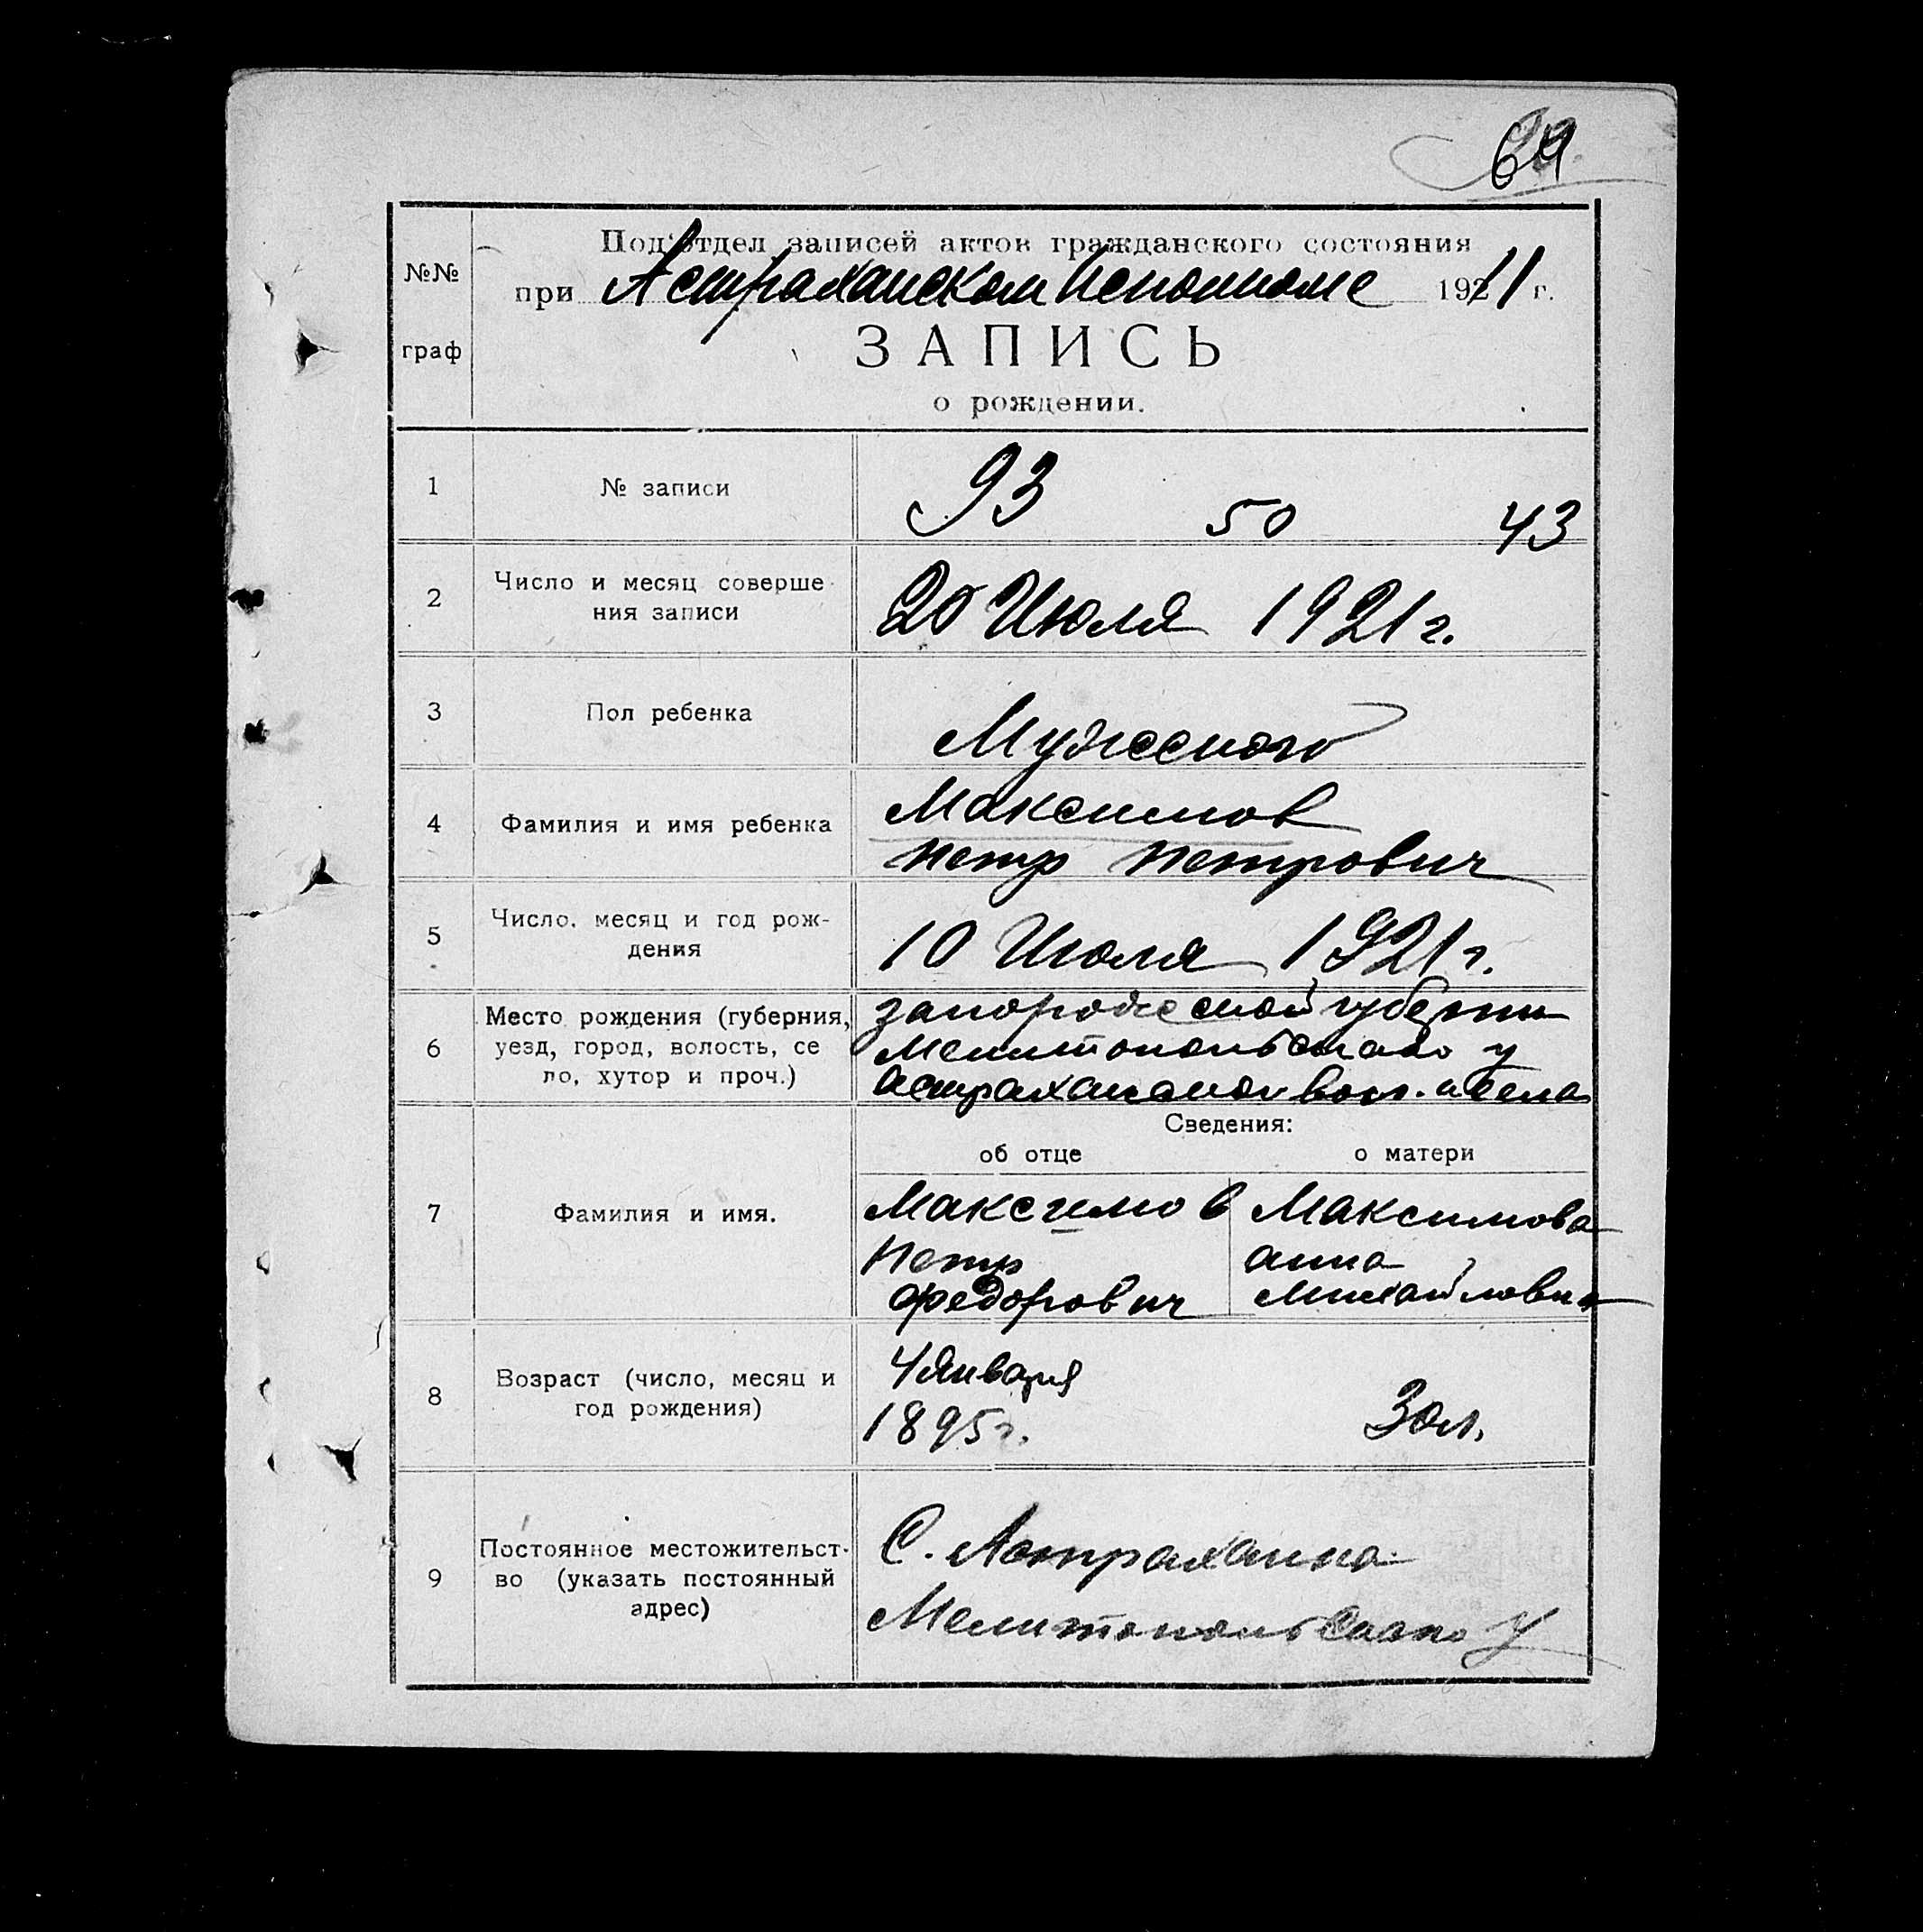 69
Под'отдел записей актов гражданского состояния
№№
при Астраханском Исполкоме 1921 г.
граф
ЗАПИСЬ
о рождении.
1 № записи 93 50 43
2 Число и месяц соверше-
ния записи
20 Июля 1921 г.
3 Пол ребенка Мужеского
4 Фамилия и имя ребенка
Максимов
Петр Петрович
5 Число, месяц и год рож-
дения
10 Июля 1921 г.
6 Место рождения (губерния,
уезд, город, волость, се
ло, хутор и проч.)
Запорожеской губернии
Мелитопольского у
Астраханской вол. и села
Сведения:
об отце о матери
7 Фамилия и имя.
Максимов Максимова
Петр Анна
Федорович Михайловна
8 Возраст (число, месяц и
год рождения)
4 Января
1895 г. 30 л.
9 Постоянное местожительст-
во (указать постоянный
адрес)
С. Астраханка
Мелитопольского У